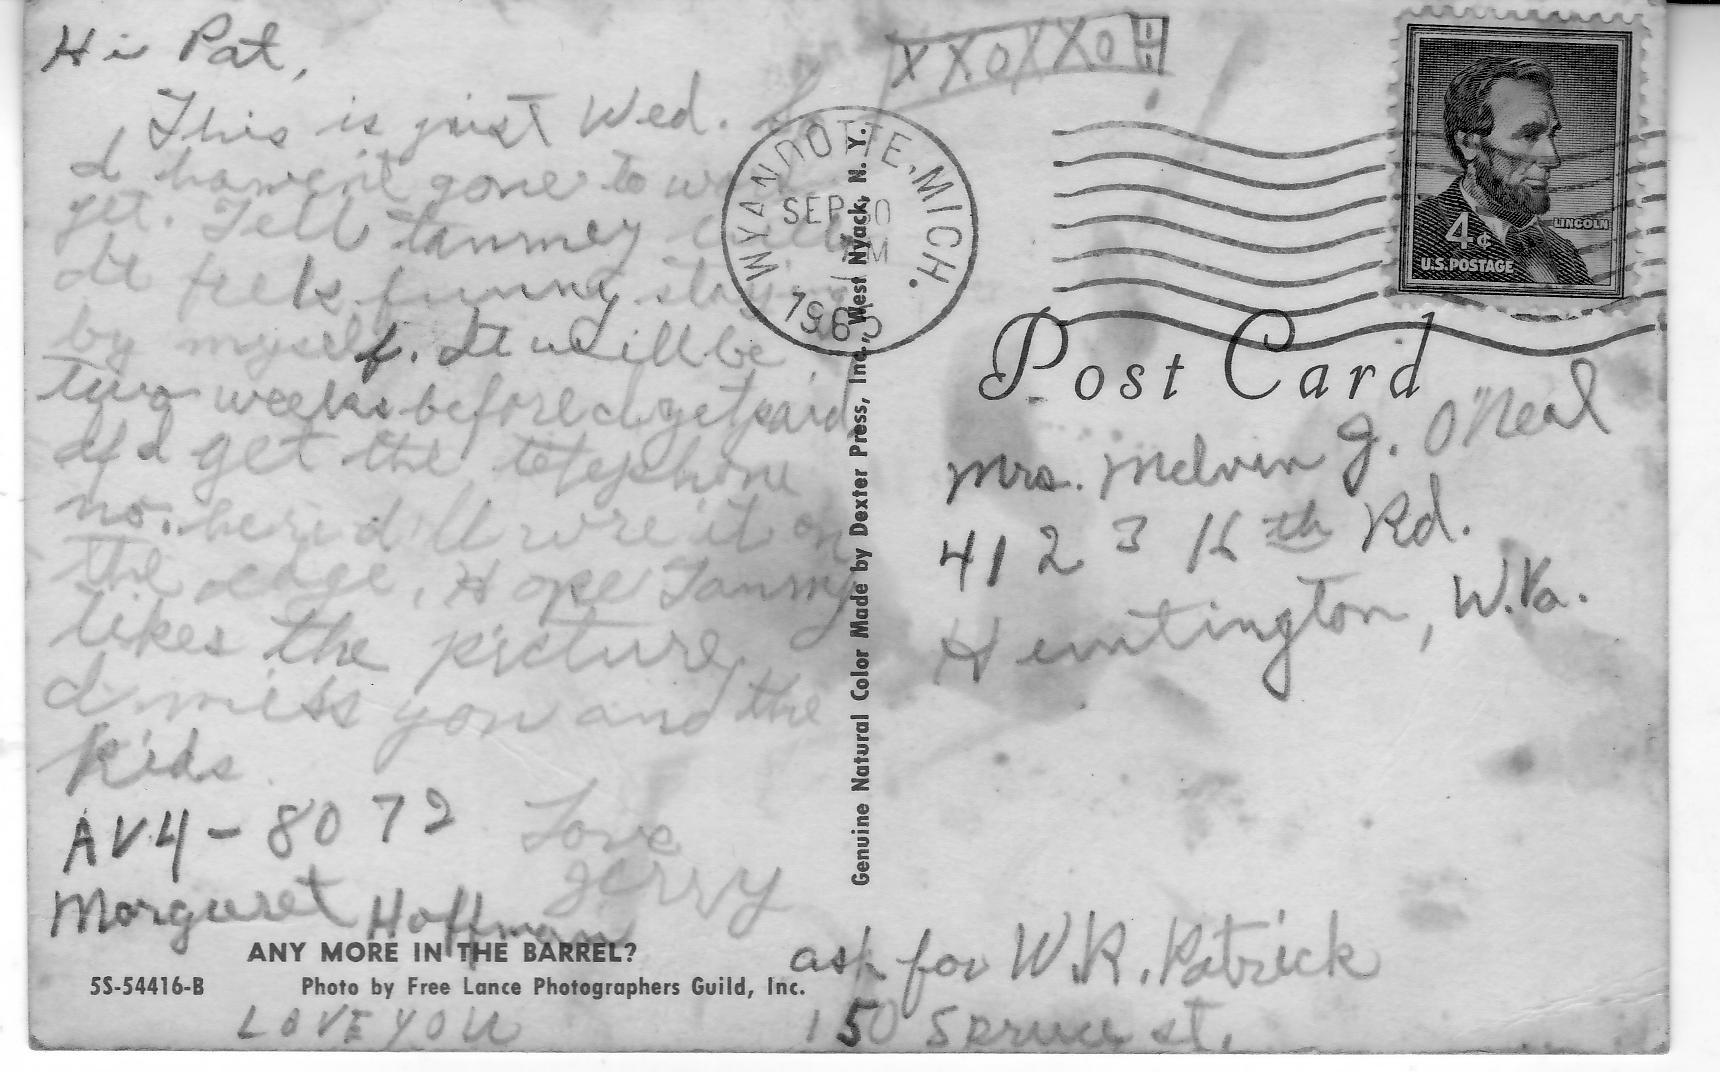 Hi Pat,
This is just Wed. &
I haven't gone to
yet. Tell Tammey
It feels funny staying
by myself. It will be
two weeks before I get paid
If I get the telephone
no. here I'll wre it on
the edge. Hope Tammy
likes the picture.
I miss you and the
kids.
Love
Jerry
AV4-8072
Margaret Hoffman
ANY MORE IN THE BARREL?
5S-54416-B Photo by Free Lance Photographers Guild, Inc.
LOVE YOU
Genuine Natural Color Made by Dexter Press, Inc., West Nyack, N. Y.
XXOXXO
WYANDOTTE, MICH.
SEP
M
196
4¢
LINCOLN
U.S. POSTAGE
Post Card
Mrs. Melvin J. O'Neal
4123 16th Rd.
Huntington, W.Va.
ask for W.R. Patrick
150 Spruce st.